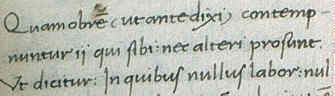 Quamobrē (ut ante dixi) contemp
nuntur ii qui sibi: nec alteri prosunt.
Vt dicitur: In quibus nullus labor: nul